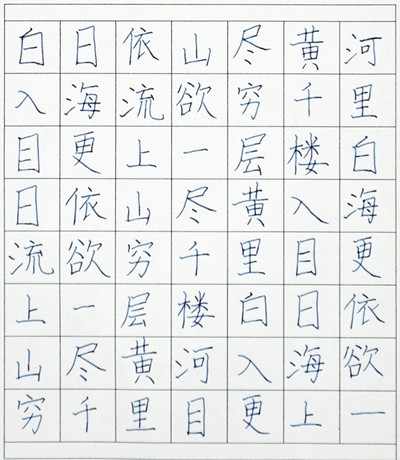 白日依山尽黄河
入海流欲穷千里
目更上一层楼白
日依山尽黄入海
流欲穷千里目更
上一层楼白日依
山尽黄河入海欲
穷千里目更上一